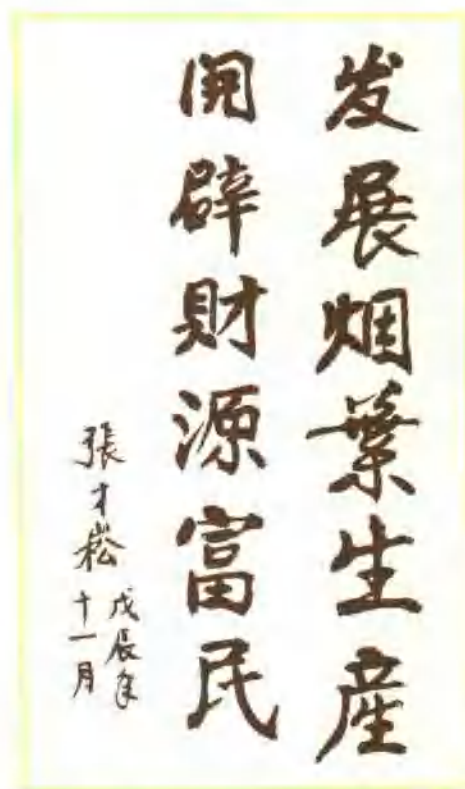 发展烟葉生産
開辟財源富民
張才崧
戊辰年
十一月